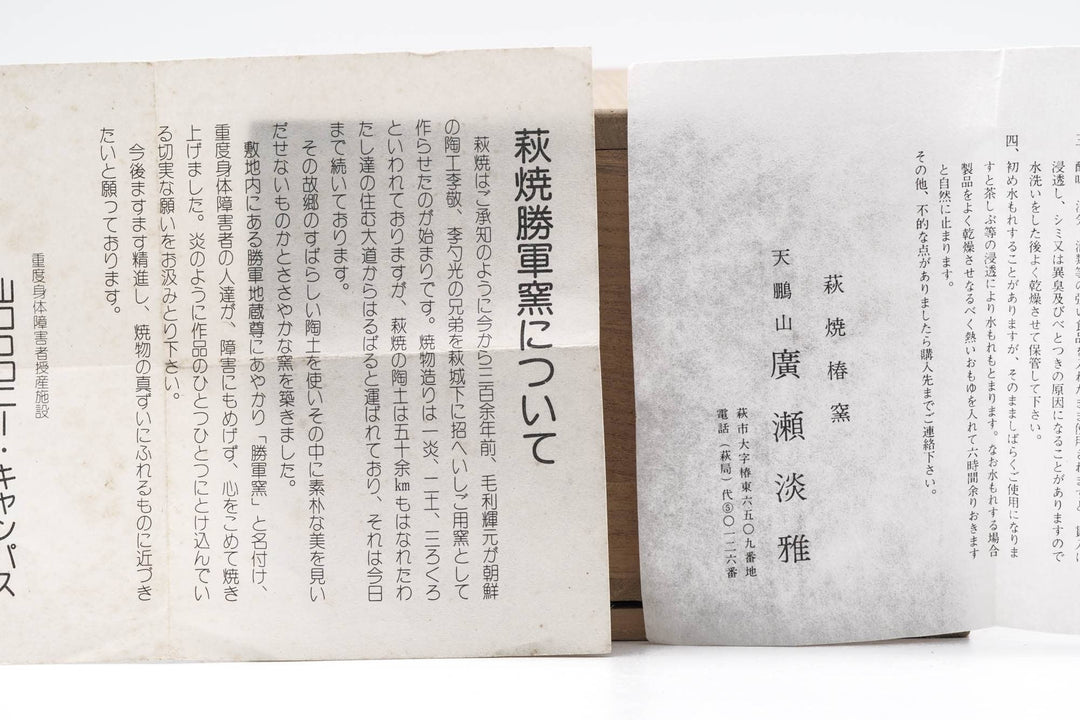 浸透し、シミ又は異臭及びべとつきの原因になることがありますので
水洗いをした後よく乾燥させて保管して下さい。
四、初め水もれすることがありますが、そのまましばらくご使用になりま
すと茶しぶ等の浸透により水もれもとまります。なお水もれする場合
製品をよく乾燥させなるべく熱いおもゆを入れて六時間余りおきます
と自然に止まります。
その他、不的な点がありましたら購入先までご連絡下さい。
萩焼椿窯
天鵬山廣瀬淡雅
萩市大字椿東六五〇九番地
電話(萩局)代⑤〇一二六番
萩焼勝軍窯について
萩焼はご承知のように今から三百余年前、毛利輝元が朝鮮
の陶工李敬、李勺光の兄弟を萩城下に招へいしご用窯として
作らせたのが始まりです。焼物造りは一炎、二土、三ろくろ
といわれておりますが、萩焼の陶土は五十余kmもはなれたわ
たし達の住む大道からはるばると運ばれており、それは今日
まで続いております。
その故郷のすばらしい陶土を使いその中に素朴な美を見い
だせないものかとささやかな窯を築きました。
敷地内にある勝軍地蔵尊にあやかり「勝軍窯」と名付け、
重度身体障害者の人達が、障害にもめげず、心をこめて焼き
上げました。炎のように作品のひとつひとつにとけ込んでい
る切実な願いをお汲みとり下さい。
今後ますます精進し、焼物の真ずいにふれるものに近づき
たいと願っております。
重度身体障害者授産施設
山口コロニー・キャンパス